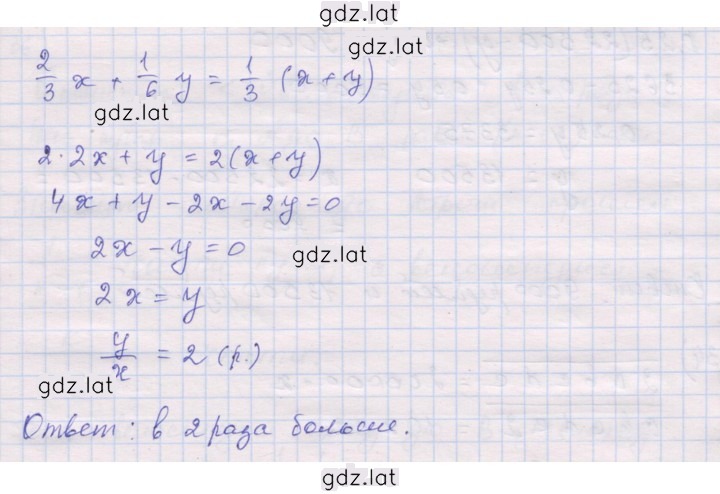 gdz.lat
2/3 x + 1/6 y = 1/3 (x+y)
gdz.lat
2·2x + y = 2(x+y)
4x + y - 2x - 2y = 0
2x - y = 0
gdz.lat
2x = y
y/x = 2 (р.)
gdz.lat
Ответ: в 2 раза больше.
gdz.lat